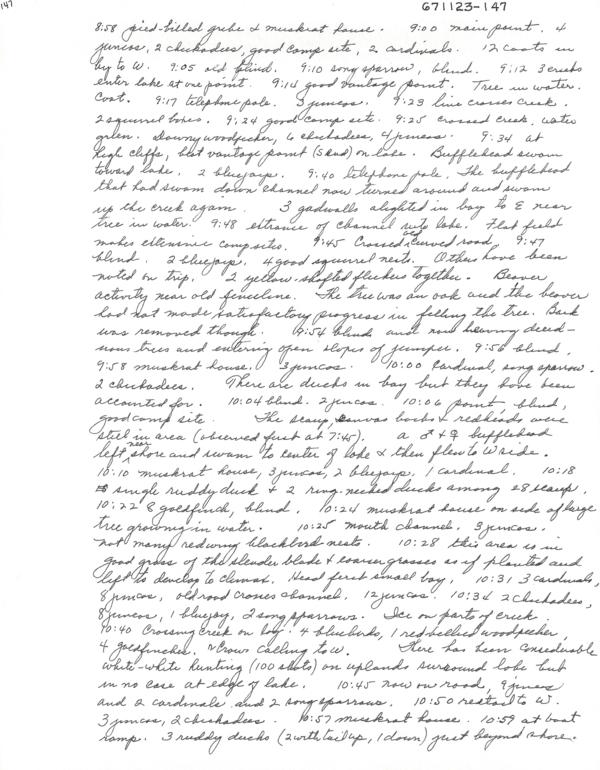 147
671123-147
8:58 pied-billed grebe & muskrat house. 9:00 main point. 4
juncos, 2 chickadees, good camp site, 2 cardinals. 12 coots in
bay to W. 9:05 old blind. 9:10 song sparrow, blind. 9:12 3 creeks
enter lake at one point. 9:14 good vantage point. Tree in water.
Coot. 9:17 telephone pole. 3 juncos. 9:23 line crosses creek.
2 squirrel boxes. 9:24 good camp site. 9:25 crossed creek, water
green. Downy woodpecker, 6 chickadees, 4 juncos. 9:34 at
high cliffs, best vantage point (S end) on lake. Bufflehead swam
toward lake. 2 bluejays. 9:40 telephone pole. The bufflehead
that had swam down channel now turned around and swam
up the creek again. 3 gadwalls alighted in bay to E near
tree in water. 9:48 entrance of channel into lake. Flat field
makes extensive campsites. 9:45 Crossed old curved road, 9:47
blind. 2 bluejays. 4 good squirrel nests. Others have been
noted on trip. 2 yellow-shafted flickers together. Beaver
activity near old fenceline. The tree was an oak and the beaver
had not made satisfactory progress in felling the tree. Bark
was removed though. 9:54 blind and now leaving decid-
uous trees and entering open slopes of juniper. 9:56 blind,
9:58 muskrat house. 3 juncos. 10:00 Cardinal, song sparrow.
2 chickadees. There are ducks in bay but they have been
accounted for. 10:04 blind. 2 juncos. 10:06 point - blind,
good camp site. The scaup, canvas backs & redheads were
still in area (observed first at 7:45). a ♂ + ♀ bufflehead
left near shore and swam to center of lake & then flew to W side.
10:10 muskrat house, 3 juncos, 2 bluejays, 1 cardinal. 10:18
single ruddy duck + 2 ring-necked ducks among 28 scaup.
10:22 8 goldfinch, blind. 10:24 muskrat house on side of large
tree growing in water. 10:25 mouth channel. 3 juncos.
Not many redwing blackbird nests. 10:28 this area is in
good grass of the slender blade & coarser grasses as if planted and
left to develop to climax. Head first small bay, 10:31 3 cardinals,
8 juncos, old road crosses channel. 12 juncos. 10:34 2 chickadees,
8 juncos, 1 bluejay, 2 song sparrows. Ice on parts of creek.
10:40 Crossing creek on bay. 4 bluebirds, 1 red bellied woodpecker,
4 goldfinches. Crows calling to W. There has been considerable
white-white hunting (100 shots) on uplands surround lake but
in no case at edge of lake. 10:45 now on road, 9 juncos
and 2 cardinals and 2 song sparrows. 10:50 to W.
3 juncos, 2 chickadees. 10:57 muskrat house. 10:59 at boat
ramp. 3 ruddy ducks (2 with tail up, 1 down) just beyond shore.